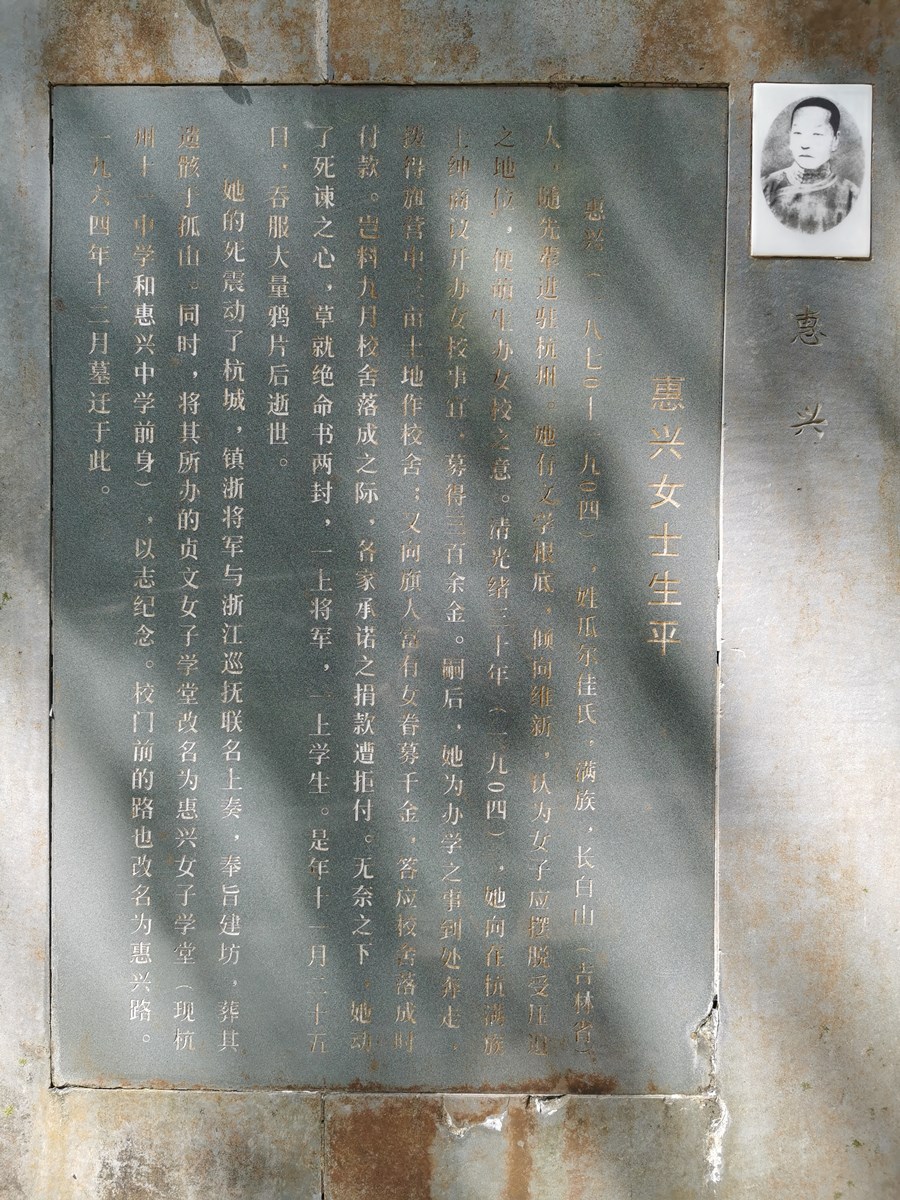 惠兴
惠兴女士生平
惠兴（一八七〇—一九〇四），姓瓜尔佳氏，满族，长白山（吉林省）
人，随先辈进驻杭州。她有文学根底，倾向维新，认为女子应摆脱受压迫
之地位，便萌生办女校之意。清光绪三十年（一九〇四），她向在杭满族
士绅商议开办女校事宜，募得三百余金。嗣后，她为办学之事到处奔走，
拨得旗营中一亩土地作校舍；又向旗人富有女眷募千金，答应校舍落成时
付款。岂料九月校舍落成之际，各家承诺之捐款遭拒付。无奈之下，她动
了死谏之心，草就绝命书两封，一上将军，一上学生。是年十一月二十五
日，吞服大量鸦片后逝世。
她的死震动了杭城，镇浙将军与浙江巡抚联名上奏，奉旨建坊，葬其
遗骸于孤山。同时，将其所办的贞文女子学堂改名为惠兴女子学堂（现杭
州十一中学和惠兴中学前身），以志纪念。校门前的路也改名为惠兴路。
一九六四年十二月墓迁于此。